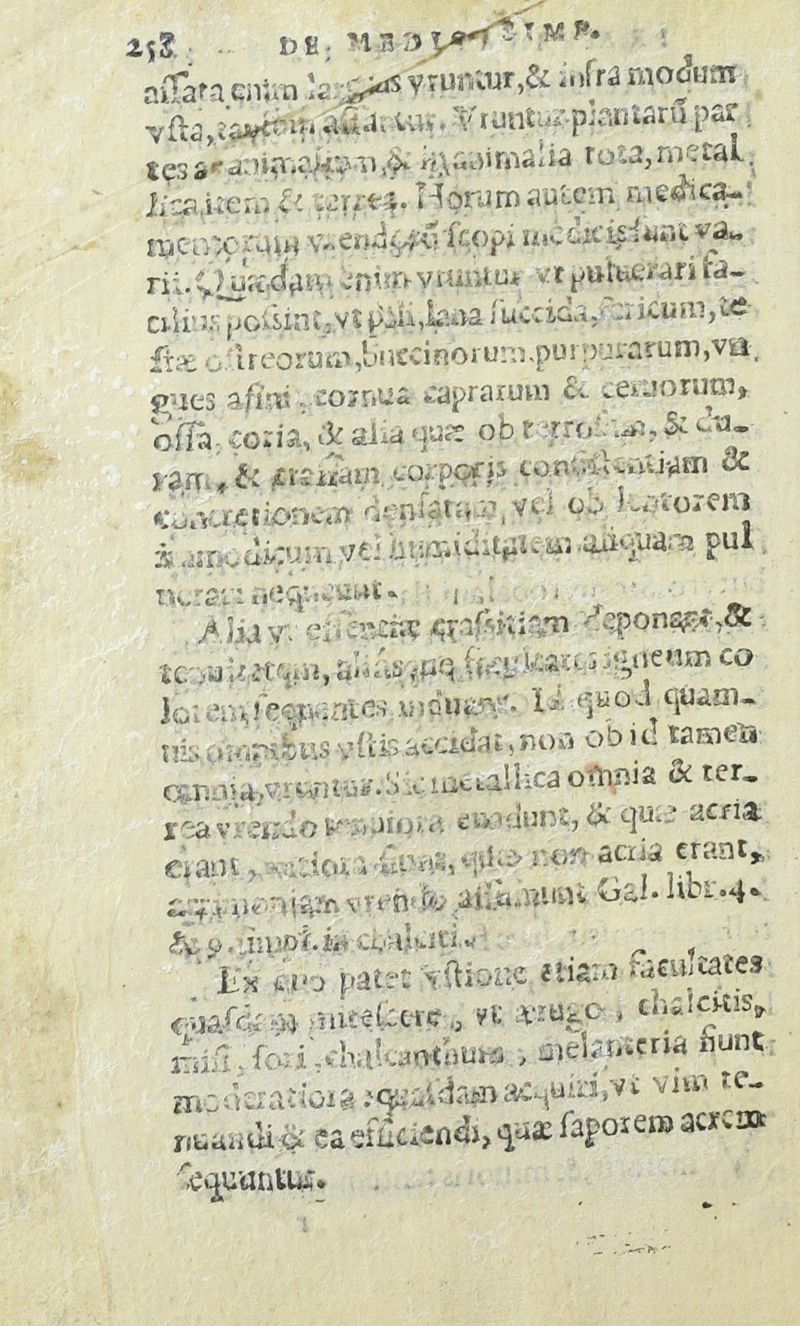 258 DE MEDI SIMP.
assata enim largius vruntur, & infra modum
vsta, tantum assantur. Vruntur plantarū par
tes animalium, & animalia tota, metal
lica item & terrea. Horum autem medica-
mentorum vrendorū scopi medicis sunt va-
rii. Quædam enim vruntur vt puluerari fa-
cilius possint, vt pili, lana succida, sericum, te
stæ ostreorum, buccinorum, purpurarum, vn
gues asini, cornua caprarum & ceruorum,
ossa, coria, & alia quæ ob & du-
ram, & crassam corporis consistentiam &
concretionem densatam, vel ob lentorem
immodicum vel humiditatem aliquam pul
uerari nequeunt.
Alia vt essentiæ crassitiem deponant, &
igneum co
lorem sequentes induant. Id quod quam-
uis omnibus vstis accidat, non ob id tamen
omnia vruntur. Sic metallica omnia & ter-
rea vrendo tenuiora euadunt, & quæ acria
erant, fiunt, quæ non acria erant,
acrimoniam vrendo assumunt Gal. libr. 4.
& 9. simpl. in chalciti.
Ex quo patet vstione etiam facultates
quasdam mitescere, vt ærugo, chalcitis,
misi, sori, chalcanthum, melanteria fiunt
moderatiora: quasdam acquiri, vt vim te-
nuandi & ea efficiendi, quæ saporem acrem
sequuntur.